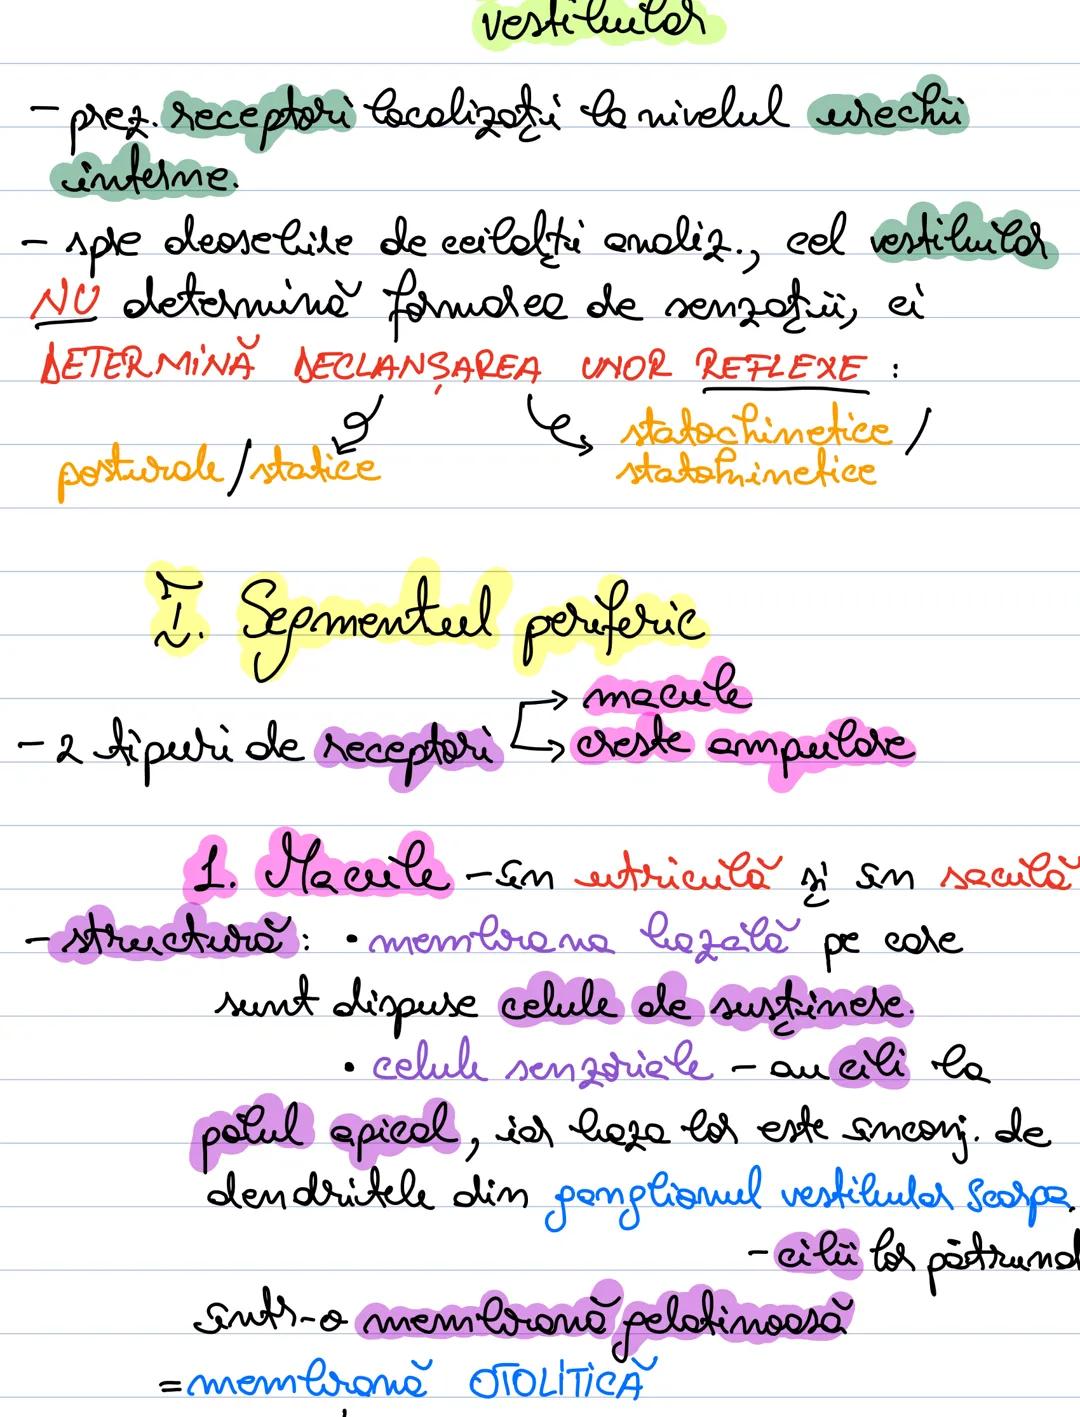 vestibular
- prez. receptori localizați la nivelul urechii
interne.
- spre deosebire de ceilalți analiz., cel vestibular
NU determină formarea de senzații, ci
DETERMINĂ DECLANȘAREA UNOR REFLEXE :
posturale/statice
statochinetice /
statokinetice
I. Segmentul periferic
- 2 tipuri de receptori → macule
→ creste ampulare
1. Macule - în utriculă și în saculă
- structură: • membrana bazală pe care
sunt dispuse celule de susținere.
• celule senzoriale - au cili la
polul apical, iar baza lor este înconj. de
dendritele din ganglionul vestibular Scarpa.
- cilii lor pătrund
într-o membrană gelatinoasă
= membrană OTOLITICĂ